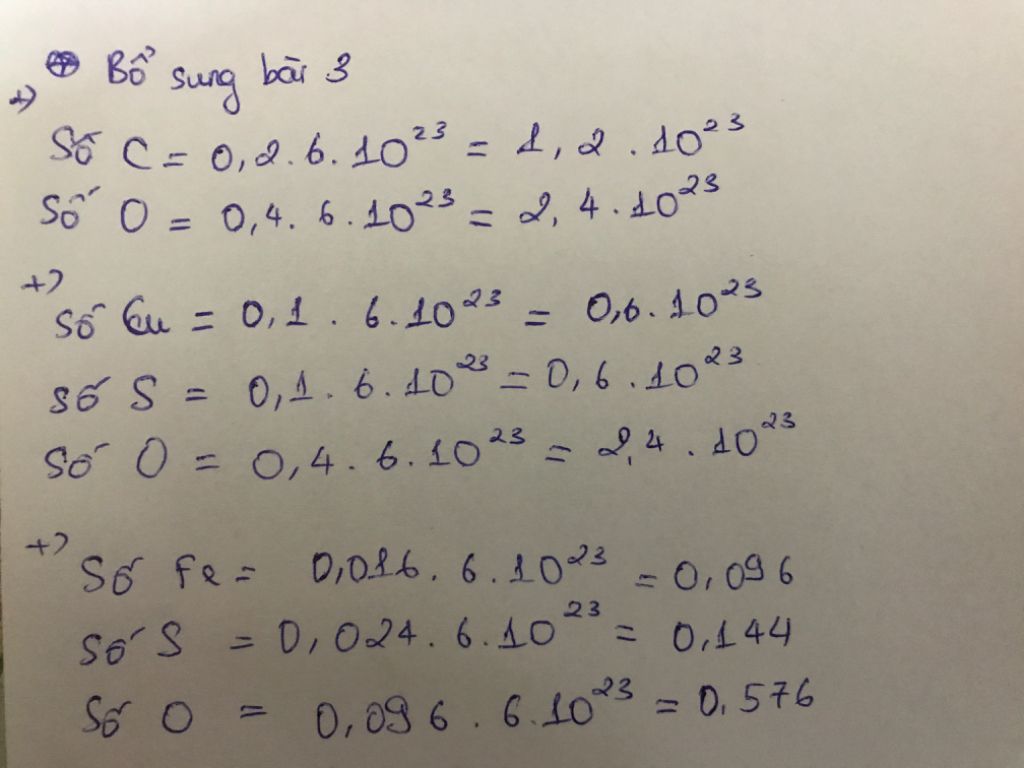 ⊕ Bổ sung bài 3
+)
Số C = 0,2. 6. 10²³ = 1, 2 . 10²³
Số O = 0,4. 6. 10²³ = 2, 4. 10²³
+)
Số Cu = 0,1 . 6. 10²³ = 0,6. 10²³
số S = 0,1. 6. 10²³ = 0,6. 10²³
Số O = 0,4. 6. 10²³ = 2,4 . 10²³
+)
Số Fe = 0,016. 6. 10²³ = 0,096
Số S = 0,024. 6. 10²³ = 0,144
Số O = 0,096 . 6. 10²³ = 0,576